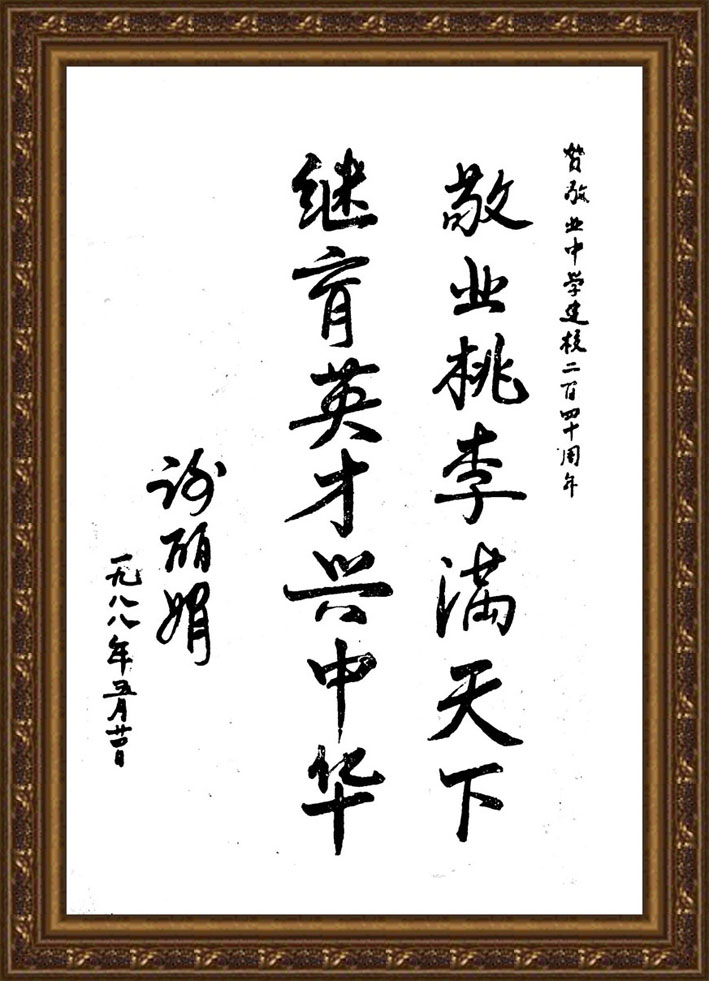 贺敬业中学建校二百四十周年
敬业桃李满天下
继育英才兴中华
谢丽娟
一九八八年五月廿日